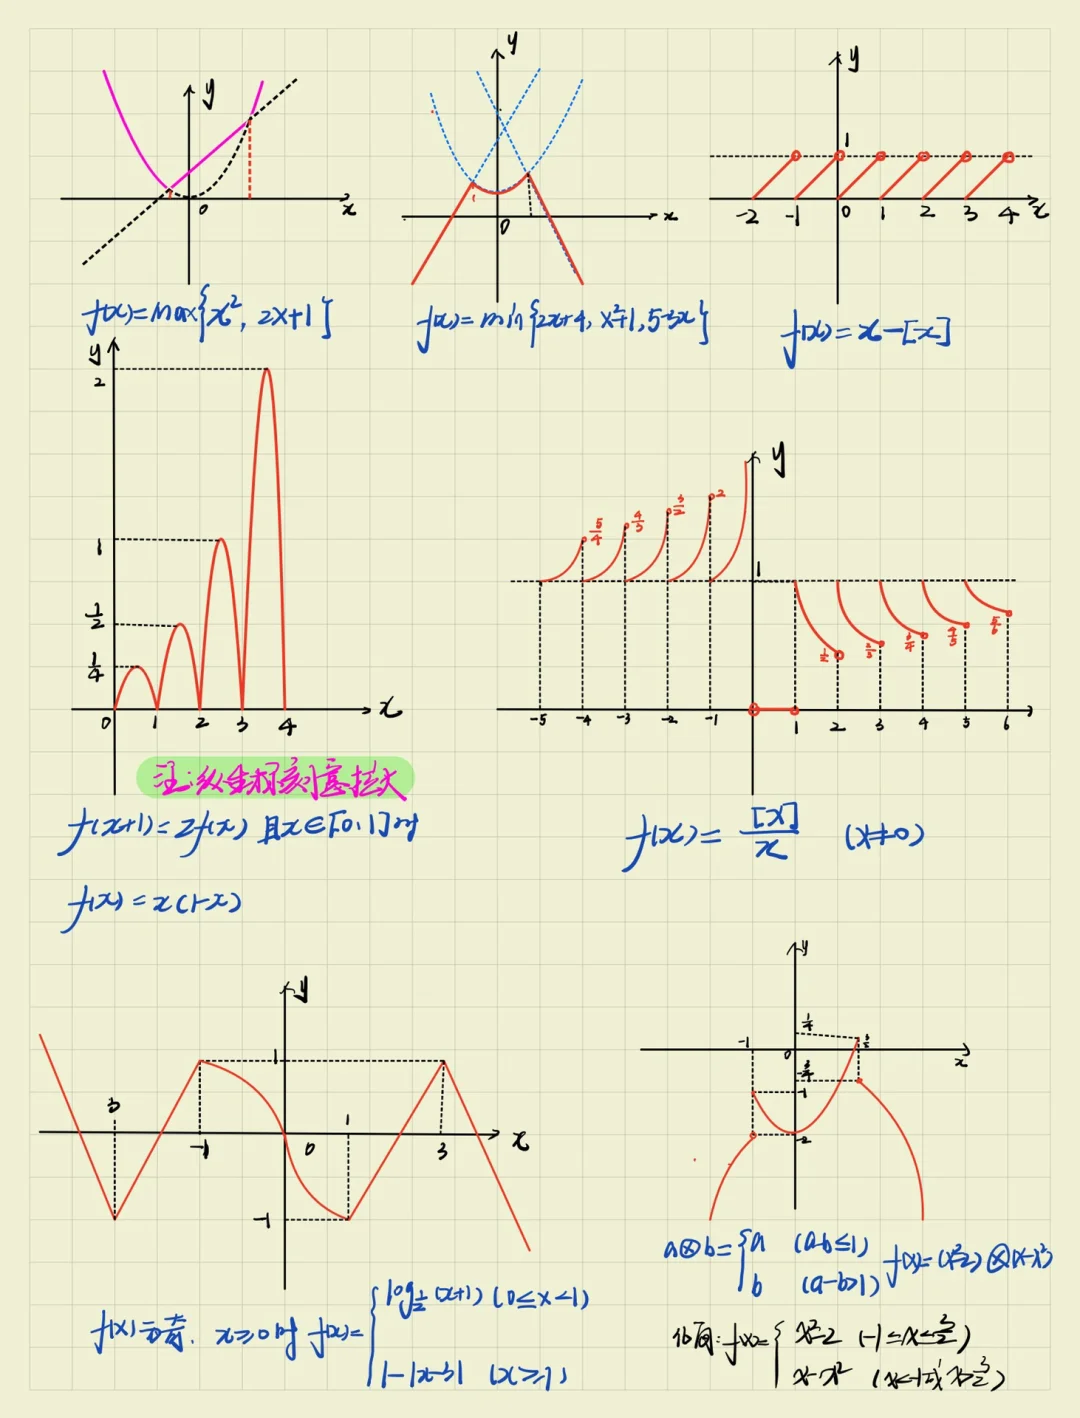 y
x
0
f(x)=max{x², 2x+1}
y
x
0
f(x)=min{2x+4, x²+1, 5-3x}
y
1
-2 -1 0 1 2 3 4 x
f(x)=x-[x]
y
2
1
1/2
1/4
0 1 2 3 4 x
注:纵坐标刻意拉大
f(x+1)=2f(x) 且x∈[0,1]时
f(x)=x(1-x)
y
5/4 4/3 3/2 2
1
1/2 2/3 3/4 4/5 5/6
-5 -4 -3 -2 -1 1 2 3 4 5 6
f(x)=[x]/x (x≠0)
y
1
3 -1 0 1 3 x
-1
f(x)为奇. x≥0时 f(x)={log_{1/2}(x+1) (0≤x<1)
1-|x-3| (x≥1)
y
1/4
-1 0 3/2 x
-3/4
-1
-2
a⊗b={a (a-b≤1) f(x)=(x²-2)⊗(x-x²)
b (a-b>1)
化简:f(x)={x²-2 (-1≤x≤3/2)
x-x² (x<-1或x>3/2)